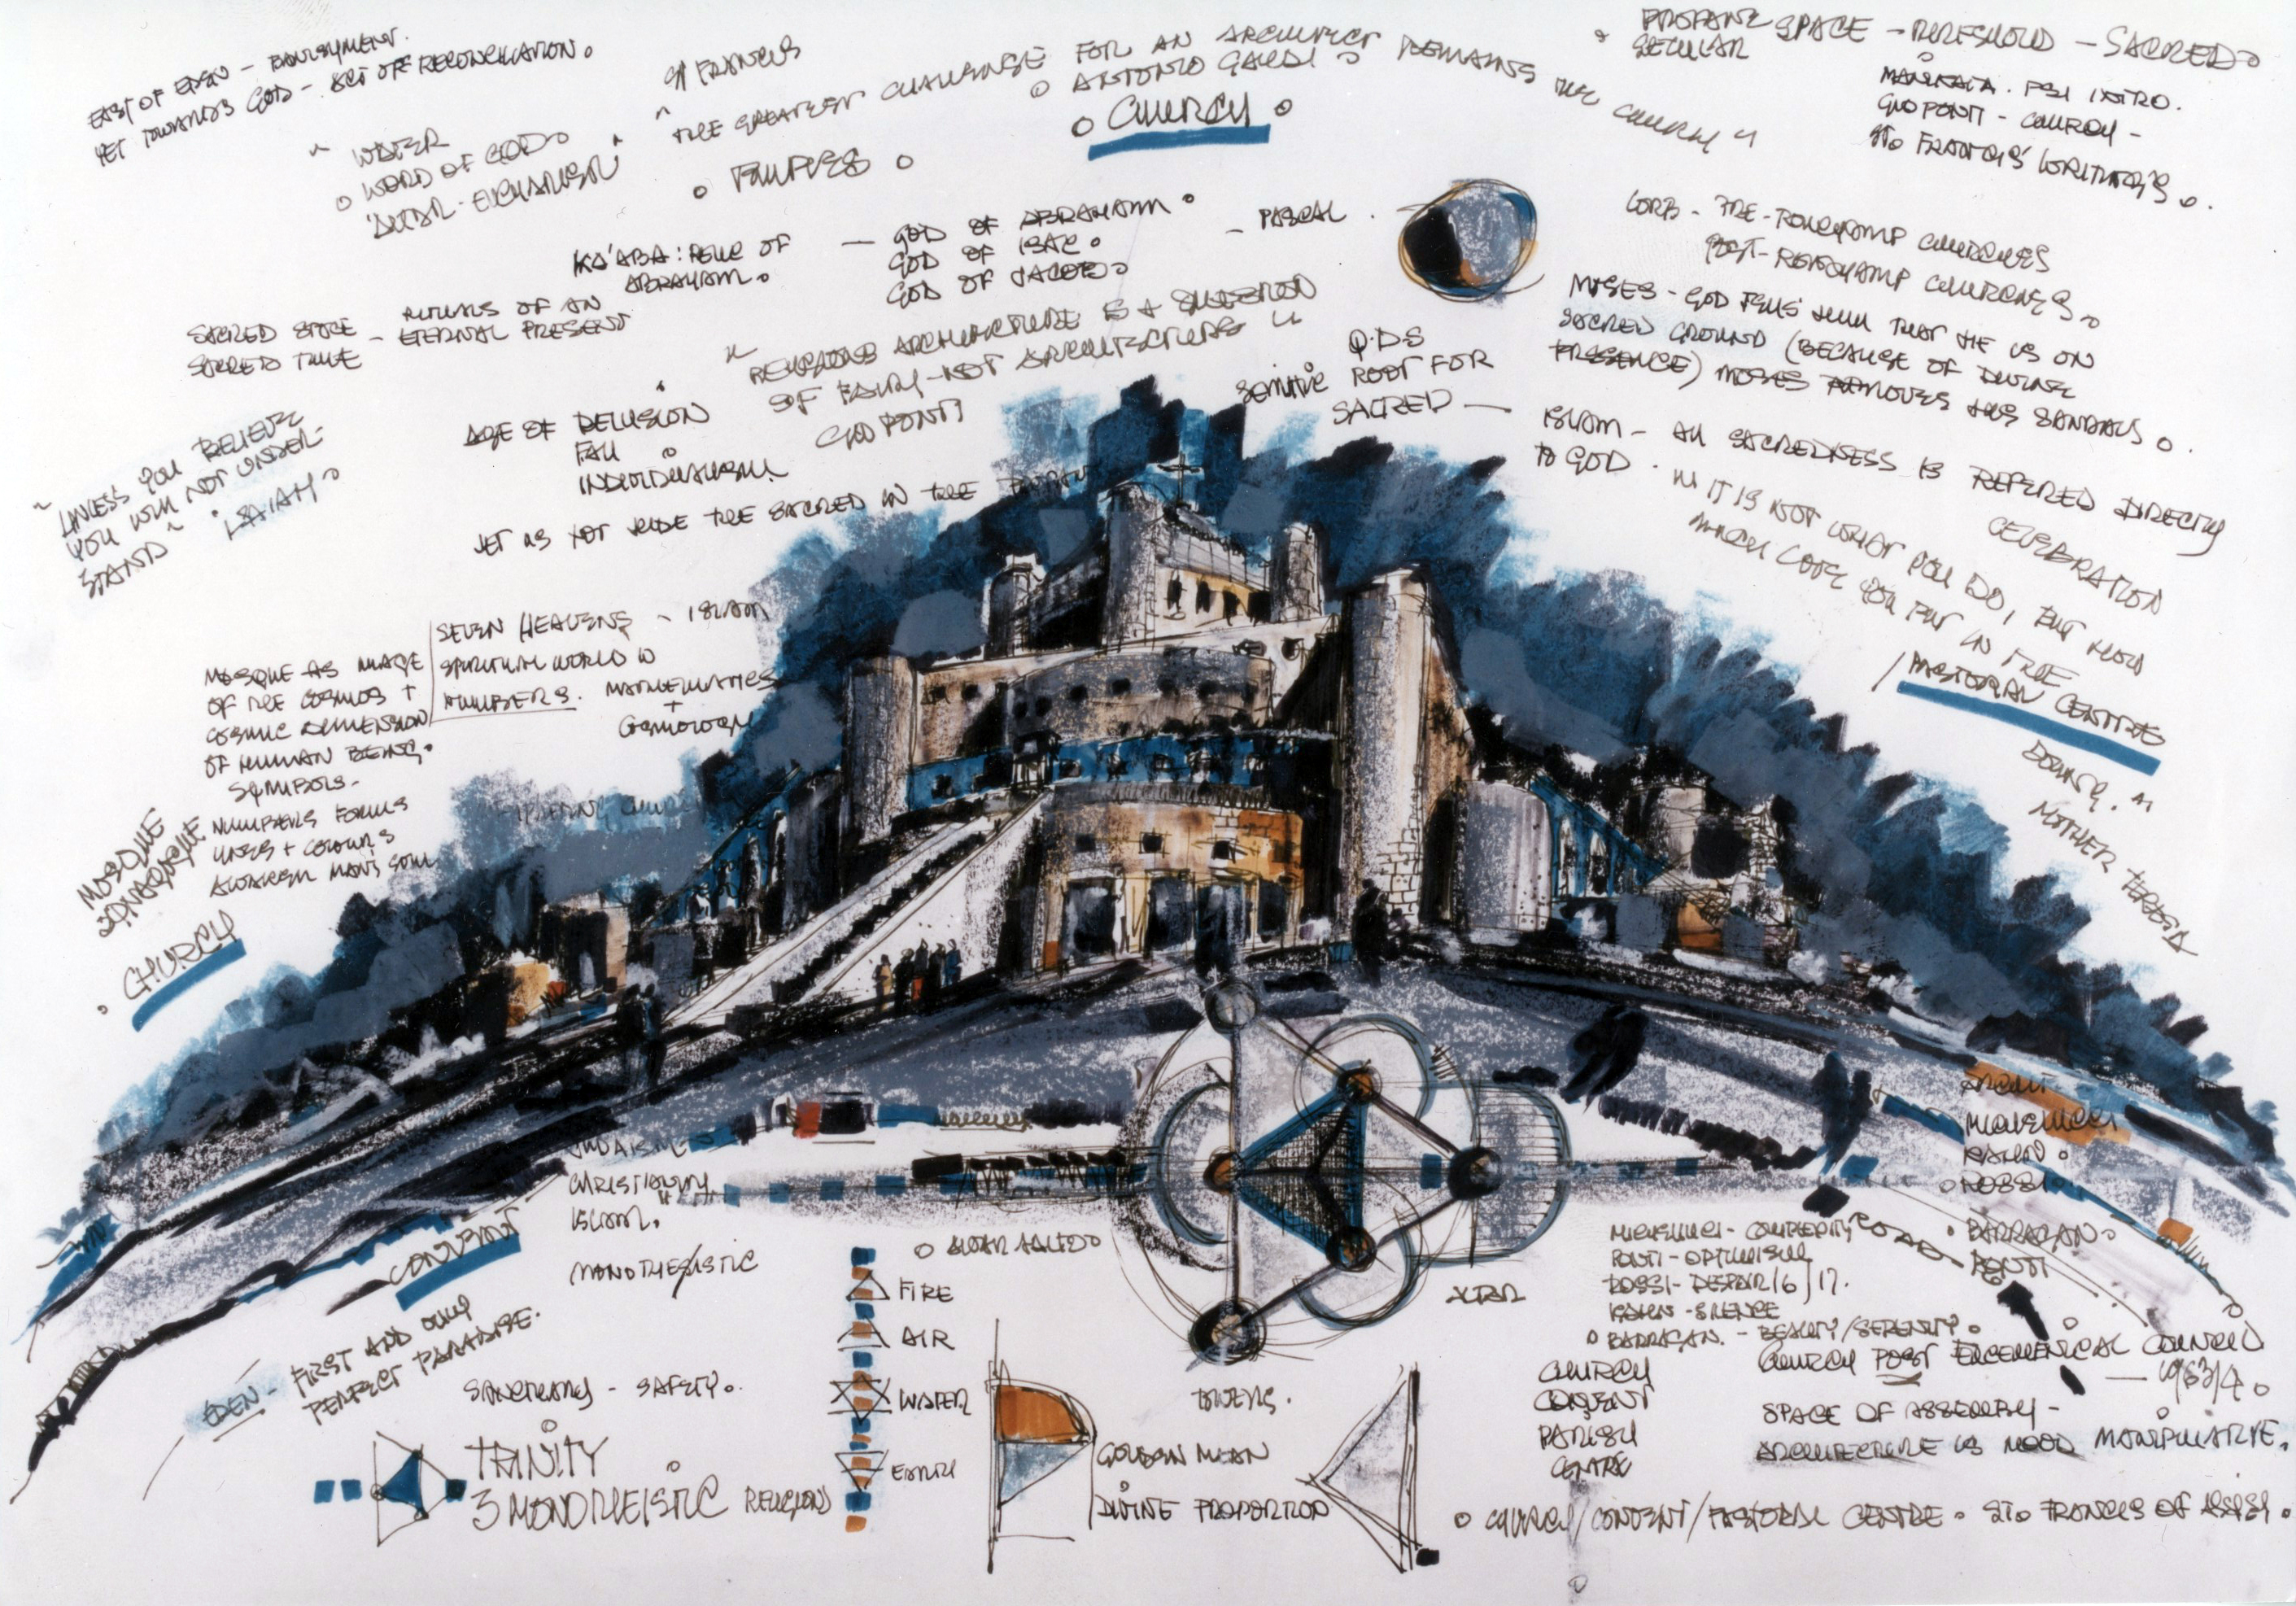 EAST OF EDEN - BANISHMENT.
YET TOWARDS GOD - ACT OF RECONCILIATION.
ST FRANCIS
" WATER
WORD OF GOD
ALTAR - EUCHARIST "
" THE GREATEST CHALLENGE FOR AN ARCHITECT REMAINS THE CHURCH "
ANTONIO GAUDI
CHURCH
TEMPLES
PROFANE SPACE - THRESHOLD - SACRED
SECULAR
MANIKATA . INTRO.
GIO PONTI - CHURCH -
ST. FRANCIS' WRITINGS.
KA'ABA : RELIC OF
ABRAHAM.
- GOD OF ABRAHAM.
GOD OF ISAC.
GOD OF JACOB.
- PASCAL.
CORB - PRE-RONCHAMP CHURCHES
POST-RONCHAMP CHURCHES.
SACRED SPACE
SACRED TIME
- RITUALS OF AN
ETERNAL PRESENT
" RELIGIOUS ARCHITECTURE IS A QUESTION
OF FAITH - NOT ARCHITECTURE "
GIO PONTI
Q.D.S
SEMITIC ROOT FOR
SACRED -
MOSES - GOD TELLS HIM THAT HE IS ON
SACRED GROUND (BECAUSE OF DIVINE
PRESENCE) MOSES REMOVES HIS SANDALS.
ISLAM - ALL SACREDNESS IS REFERED DIRECTLY
TO GOD.
AGE OF DELUSION
FALL
INDIVIDUALISM
LET US NOT HIDE THE SACRED IN THE
" UNLESS YOU BELIEVE
YOU WILL NOT UNDER-
STAND " ISAIAH
CELEBRATION
" IT IS NOT WHAT YOU DO, BUT HOW
MUCH LOVE YOU PUT IN THE
DOING. "
MOTHER TERESA
PASTORAL CENTRE
MOSQUE AS IMAGE
OF THE COSMOS +
COSMIC DIMENSION
OF HUMAN BEING.
SYMBOLS -
SEVEN HEAVENS - ISLAM
SPIRITUAL WORLD IN
NUMBERS. MATHEMATICS
+
COSMOLOGY
NUMBERS FORMS
LINES + COLOURS
AWAKEN MAN'S SOUL
MOSQUE
SYNAGOGUE
CHURCH
JUDAISM
CHRISTIANITY
ISLAM.
MONOTHEISTIC
CONVENT
EDEN - FIRST AND ONLY
PERFECT PARADISE.
SANCTUARY - SAFETY.
TRINITY
3 MONOTHEISTIC RELIGIONS
FIRE
AIR
WATER
EARTH
TOWERS.
GOLDEN MEAN
DIVINE PROPORTION
ALTAR
ARCHT
MICHELUCCI
KAHN
ROSSI
BARRAGAN
PONTI
MICHELUCCI - COMPLEXITY
PONTI - OPTIMISM
ROSSI - DESPAIR/6/17.
KAHN - SILENCE
BARRAGAN. - BEAUTY/SERENITY.
CHURCH
CONVENT
PARISH
CENTRE
CHURCH POST ECUMENICAL COUNCIL
- 1963/4.
SPACE OF ASSEMBLY -
ARCHITECTURE IS MOOD MANIPULATIVE.
CHURCH/CONVENT/PASTORAL CENTRE. ST. FRANCIS OF ASSISI.